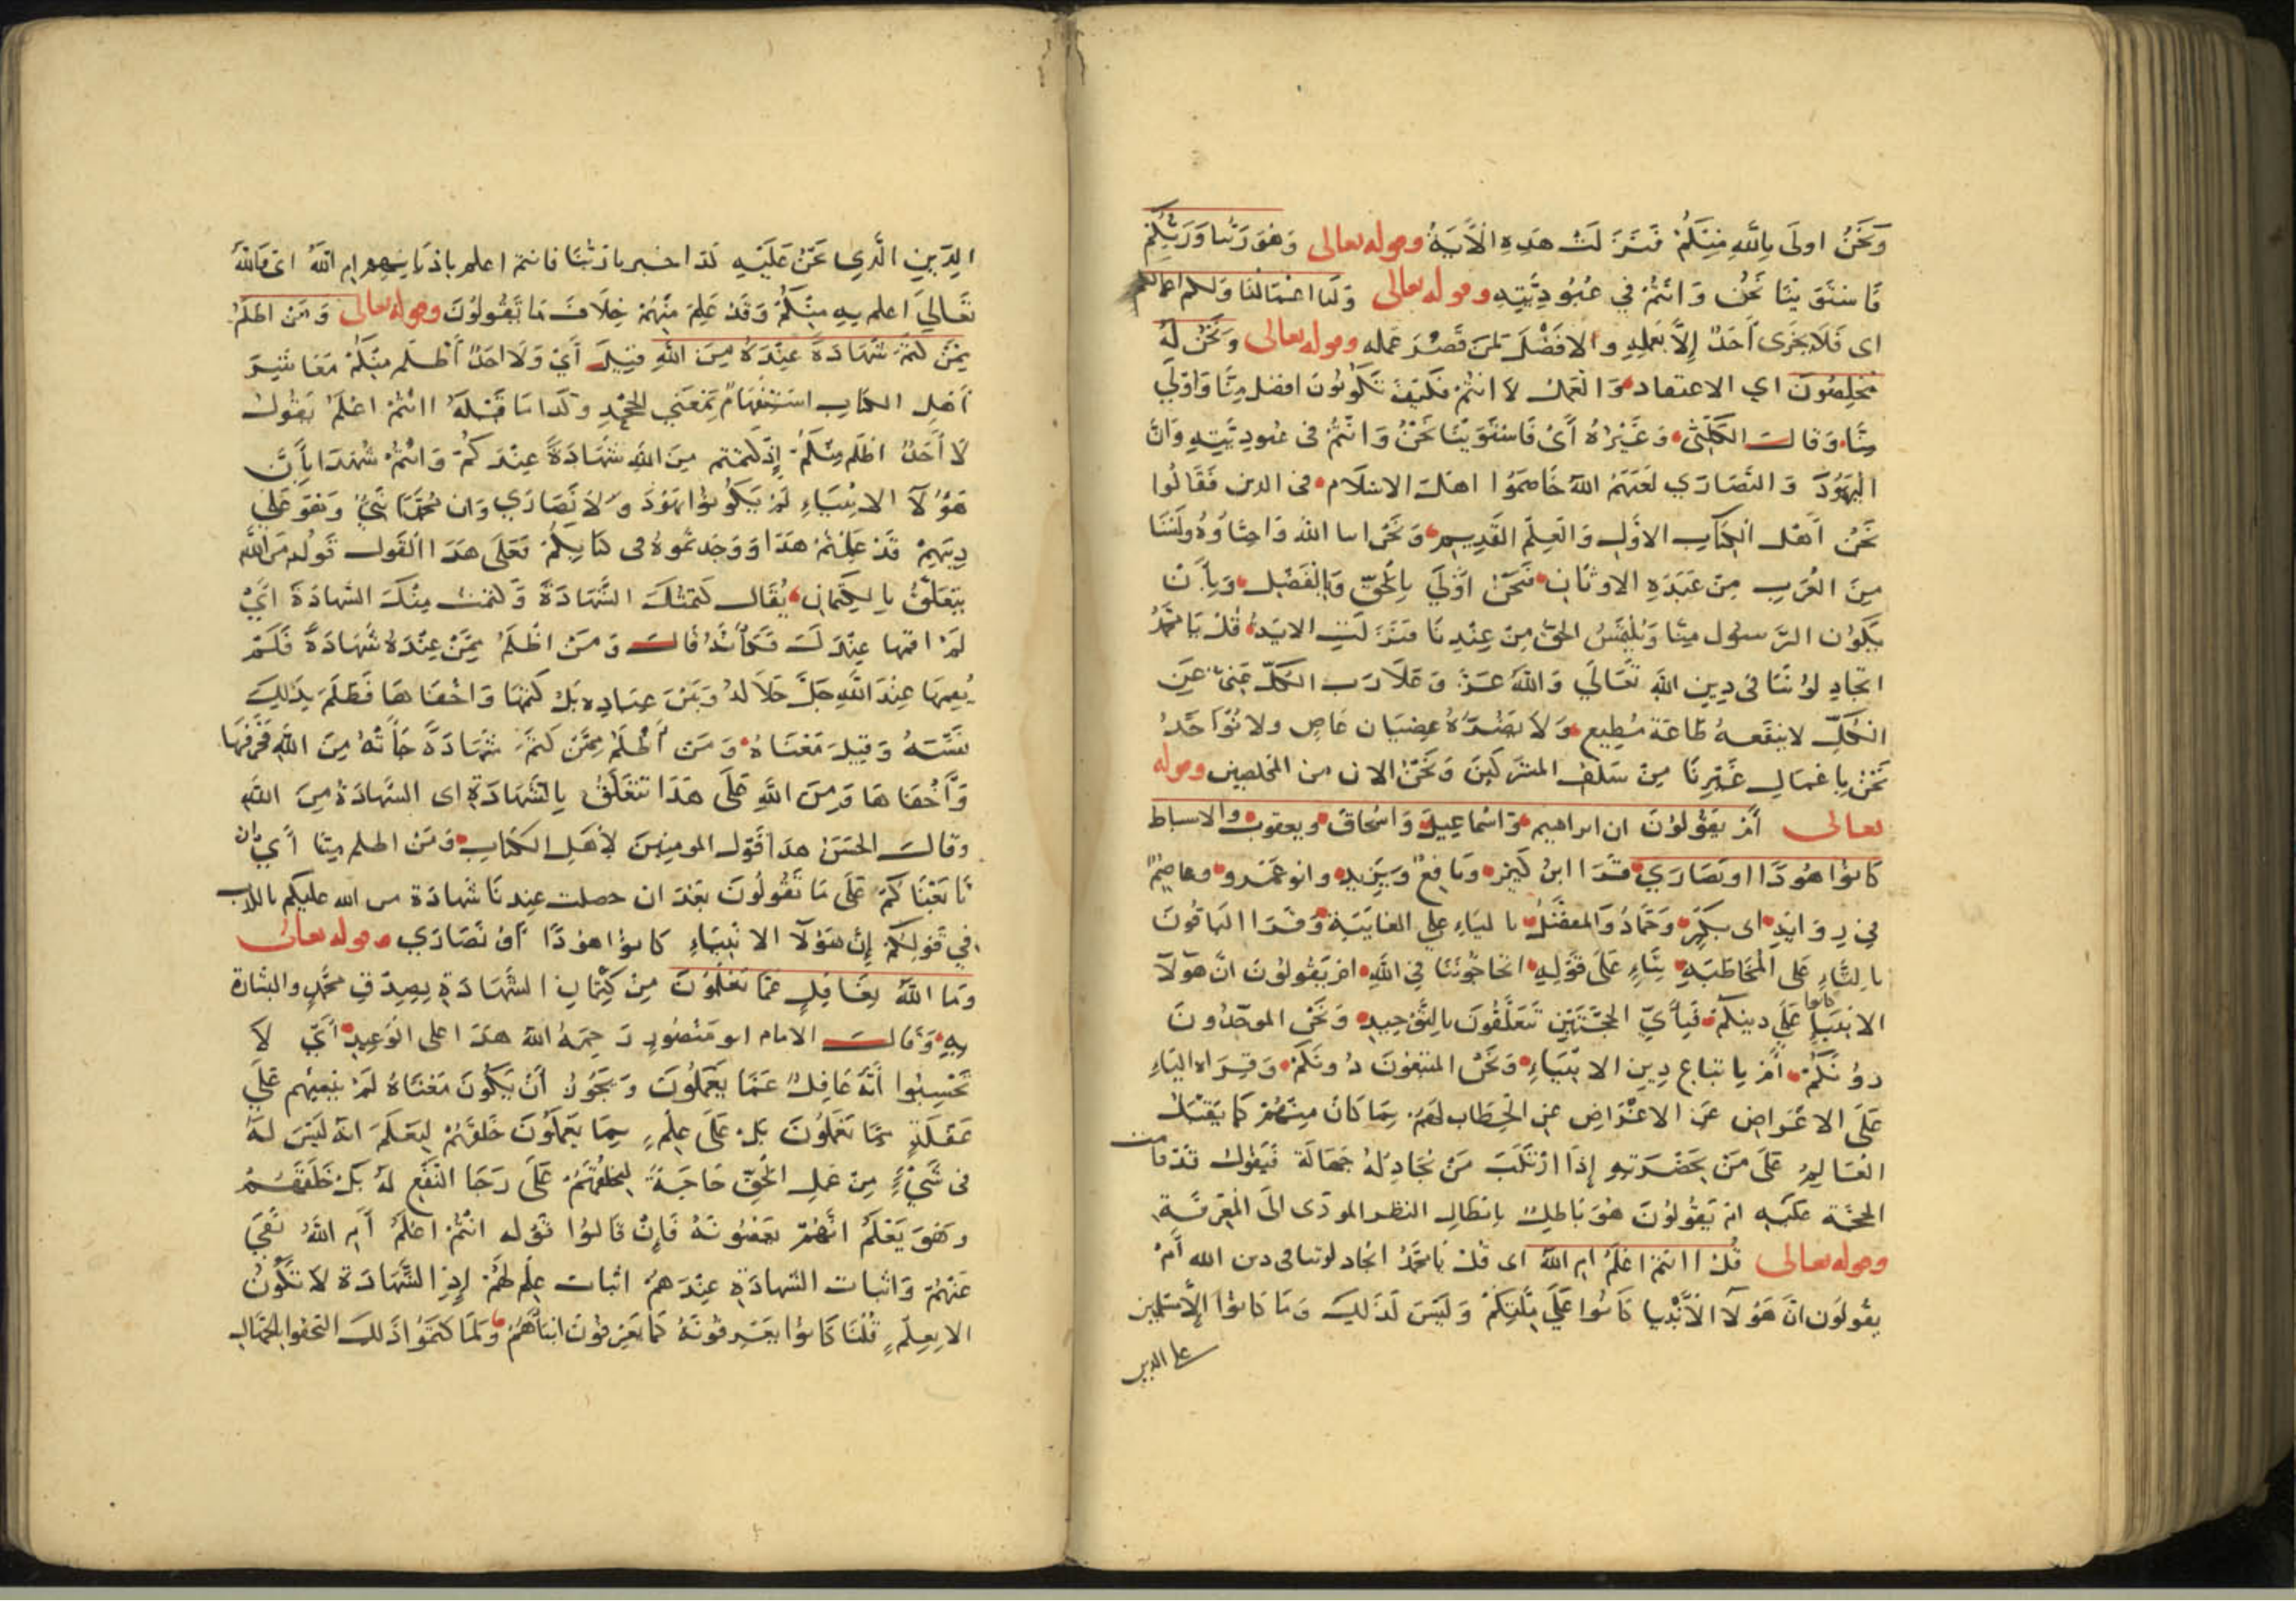 وَنَحْنُ اولَى بِاللهِ مِنْكُمْ فَنَزَلَتْ هَذِهِ الْآيَةُ وقوله تعالى وَهُوَ رَبُّنا وَرَبُّكُمْ
فَاسْتَوَيْنَا نَحْنُ وَانْتُمْ فِي عُبُودِيَّتِهِ وقوله تعالى وَلَنا اعْمَالُنَا وَلكم اعمالكم
اى فَلَا يُجْزَى أَحَدٌ إِلَّا بِعَمَلِهِ والافَضْلَ لِمَنْ قَصُرَ عَمَله وقوله تعالى وَنَحْنُ لَهُ
مُخْلِصُونَ اي الاعتقاد وَالْعَمَلَ لَا انتُمْ فَكَيْفَ تَكُونُونَ افضل مِنَّا وَاوْلَى
مِنَّا وَقالَ الْكَلْبِيُّ وَغَيْرُهُ أَىْ فَاسْتَوَيْنَا نَحْنُ وَانْتُمْ فى عُبودِيَّتِهِ وَانَّ
الْيَهُودَ وَالنَّصَارَي لَعَنَهُمُ اللهُ خَاصَمُوا اهْلَ الاسْلَامِ فى الدين فَقَالُوا
نَحْنُ أَهْلُ الْكِتَابِ الاوَّلِ وَالْعِلْمِ الْقَدِيمِ وَنَحْنُ ابنا اللهِ وَاحِبَّاؤُهُ ولَسْنَا
مِنَ الْعَرَبِ مِنْ عَبَدَةِ الاوثَانِ فَنَحْنُ اوْلَي بِالْحَقِّ وَبِالْفَضْلِ وَبِأَنْ
يَكُونَ الرَّسُول مِنَّا وَيُلْتَمَسُ الحقُّ مِنْ عِنْدِنَا فَنَزَلَتِ الايَةُ قُلْ يَا مُحَمَّدُ
اتجَادِلُونَنَا فى دِينِ اللهِ تَعَالَي وَاللهُ عَزَّ وَعَلَا رَبُّ الكلِّ غَنِىٌّ عَنِ
الْكُلِّ لا يَنْفَعهُ طَاعَة مُطِيعٍ وَلَا يَضُرُّهُ عِصْيَان عَاصٍ ولا نُؤَاخَذُ
نَحْنُ بِاعْمَالِ غَيْرِنَا مِنْ سَلَفِ المشركينَ وَنَحْنُ الان من المخلصين وقوله
تعالى أَمْ يَقُولُونَ ان ابراهيم وَاسْماعِيلَ وَاسْحَاقَ ويعقوب والاسباط
كَانُوا هُودًا اونَصَارَي قَرَا ابْنُ كَثِيرٍ ونَافِعٌ وَيَزِيد وابوعَمْرو وعاصِمٌ
فِي رِوَايَةِ ابى بَكْرٍ وَحَمَّادٌ وَالمفضَّلُ باليَاءِ علي المغايَبَةِ وَقَرَا الباقُونَ
بالتَّاءِ عَلَى الْمُخَاطَبَةِ بِنَاءِ عَلَى قَوْلِهِ اتحَاجُّونَنَا فِي اللهِ ام تَقُولُونَ انَّ هَؤلآ
الانبيآ كانوا عَلَى دينِكُمْ فَبِأَيِّ الْحُجَّتَيْنِ تَتَعَلَّقُونَ بالتَّوْحِيدِ وَنَحْنُ الموحِّدُونَ
دُونَكُمْ أَمْ بِاتباعِ دِينِ الانْبِيَاءِ وَنَحْنُ المتبعُونَ دُونَكُمْ وَقِرَاه اليَاءِ
عَلَى الاعْتَراضِ عَنِ الاعْرَاضِ عنِ الْخِطَاب لَهُمْ بِمَا كَانَ مِنْهُمْ كمَا يُقْبِلُ
العَالِمُ عَلَى مَنْ بِحَضْرَتِهِ إِذَا ارْتَكَبَ مَنْ يُجَادِلهُ جَهَالَة فَيَقُولُ قدْ قامت
الحُجَّة عَلَيْهِ امْ يَقُولُونَ هُوَ بَاطِلٌ بابطالِ النظر المودِّى الَى الْمَعْرِفَةِ
وقوله تعالى قُلْ اانتم اعْلَمُ امِ اللهُ اى قُلْ يَا مُحَمَّدُ اتجادلوننا فى دين الله أَمْ
يقُولُونَ انَّ هَؤلآ الأَنْبِيا كَانُوا عَلَى مِلَّتِكُمْ وَلَيْسَ كَذَلِكَ وَمَا كَانُوا إِلَّا مسْلِمِينَ
علي الدين
الدِّينِ الَّذِى نَحْنُ عَلَيْهِ كذا اخبرنا رَبُّنَا فانتم اعلم بِاديَانهِم ام اللهُ اى فَاللهُ
تَعَاليَ اعلم بِهِ مِنْكُمْ وَقَدْ عَلِمَ مِنْهُمْ خِلَافَ مَا تَقُولُونَ وقوله تعالى وَمَنْ اظلَمُ
مِمَّنْ كَتَمَ شَهَادَةً عِنْدَهُ مِنَ اللهِ قِيلَ أَيْ وَلَا احَدٌ أَظْلَم مِنْكُمْ مَعَاشِرَ
أَهْلِ الكتابِ اسْتِفْهَامٌ بِمَعْنَي الجَحْدِ وكَذَا مَا قَبْلَهُ اانْتُمْ اعْلَمُ يَقُولُ
لَا أَحَدَ اظلَم مِنْكُمْ إِذْ كتمتم مِنَ اللهِ شَهَادَةً عِنْدَكُمْ وَانْتُمْ شُهَدَا بِأَنَّ
هَؤُلآ الانْبِيَاءِ لَمْ يَكُونُوا يَهُودَ وَلَا نَصَارَي وَان مُحَمَّدًا نَبِيٌّ وَهُوَ عَلَي
دِينِهِمْ قَدْ عَلِمْتُمْ هَذَا وَوَجَدتُمُوهُ فى كتابِكُمْ فَعَلَى هَذَا الْقَول قَولُه مِنَ اللهِ
يَتَعَلَّقُ بِالْكِتْمَانِ يُقَال كَتَمْتُكَ الشَّهَادَةَ وَكَتَمْتُ مِنْكَ الشهادَةَ ايْ
لَمْ اقمها عِنْدَكَ فَكَأَنَّهُ قالَ وَمَنْ اظْلَمُ مِمَّنْ عِنْدَهُ شَهَادَةٌ فَلَمْ
يُقِمهَا عِنْدَ اللهِ جَلَّ جَلَالُهُ وَبَيْنَ عِبَادِهِ بَلْ كتمَهَا وَاخْفَاهَا فَظَلَمَ بِذَلِكَ
نَفْسَهُ وَقِيلَ مَعْنَاهُ وَمَنْ أَظْلَمُ مِمَّنْ كَتَمَ شَهَادَةً جَاءَتْهُ مِنَ اللهِ فَحَرَّفَهَا
وَأَخْفَاهَا وَمِنَ اللهِ عَلَى هَذَا تَتَعَلَّقُ بِالشَّهَادَةِ اى الشَّهَادَةُ مِنَ اللهِ
وقالَ الحَسَنُ هَذَا قَوْلُ المومِنِينَ لِأَهْلِ الكتابِ وَمَنْ اظلم مِنَّا أَيْ ان
تَابَعْنَاكُمْ عَلَى مَا تَقُولُونَ بَعْدَ ان حصلت عِندنَا شَهادَة من الله عليكم بالكذب
فِي قَوْلِكُمْ إِنَّ هَؤلآ الانْبِيَاءِ كانوا هُودًا أَوْ نَصَارَي وقوله تعالى
وَمَا اللهُ بِغَافِلٍ عَمَّا تَعْمَلُونَ مِنْ كِتْمَانِ الشَّهَادَةِ بِصِدْقِ مُحَمَّدٍ والبشارة
بِهِ وَقَالَ الامام ابو مَنْصُورٍ رَحِمَهُ اللهُ هَذَا على الْوَعِيدِ أَيْ لَا
تَحْسِبُوا أَنَّهُ غَافِلٌ عَمَّا يَعْمَلُونَ وَيَجُوزُ أَنْ يَكُونَ مَعْنَاهُ لَمْ يُنْشِئْهُم عَلَى
غَفْلَةٍ مِمَّا تَعْمَلُونَ بَلْ عَلَى عِلْمٍ بِمَا يَعْمَلُونَ خَلَقَهُمْ لِيَعْلَمَ انهُ لَيْسَ لَهُ
فى شَيْءٍ مِنْ عَمَلِ الْخَلْقِ حَاجَةٌ لِيَخْلُقَهُمْ عَلَى رَجَا النَّفْعِ لَهُ بَلْ خَلَقَهُمْ
وَهُوَ يَعْلَمُ انَّهُمْ يَعْصُونَهُ فَإِنْ قَالُوا قَوْله انْتُمْ اعْلَمُ أَمِ اللهُ نَفَيَ
عَنْهُمْ وَاثبَات الشهادَةِ عِنْدَهُمْ اثبات عِلْمٍ لَهُمْ إِذِ الشَّهَادَة لَا تَكُونُ
الا بِعِلْمٍ قُلْنَا كَانُوا يَعْرِفُونَهُ كَمَا يَعْرِفُونَ ابْنَاءَهُمْ وَلَمَّا كَتَمُوا ذَلكَ التحقُوا بالجُهَّالِ